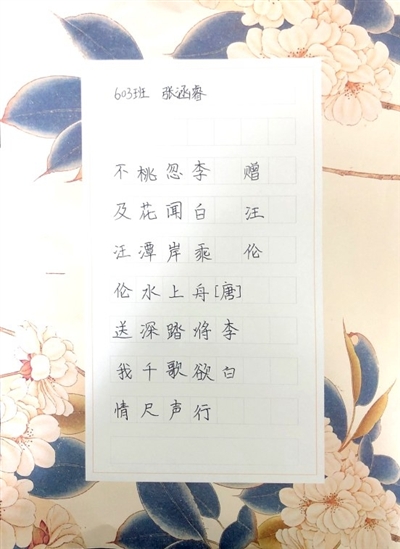 603班 张涵睿
赠汪伦
[唐]李白
李白乘舟将欲行
忽闻岸上踏歌声
桃花潭水深千尺
不及汪伦送我情